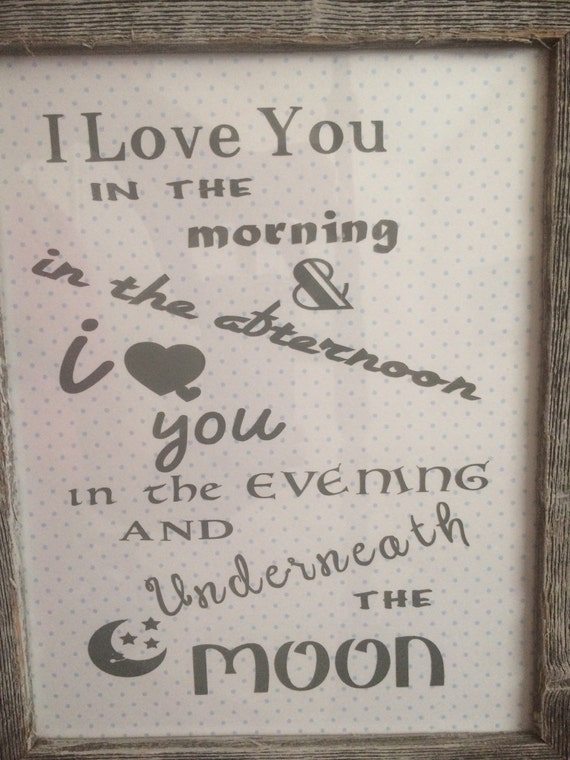 I Love You
IN THE
morning
&
in the afternoon
i
you
in the EVENING
AND
Underneath
THE
MOON